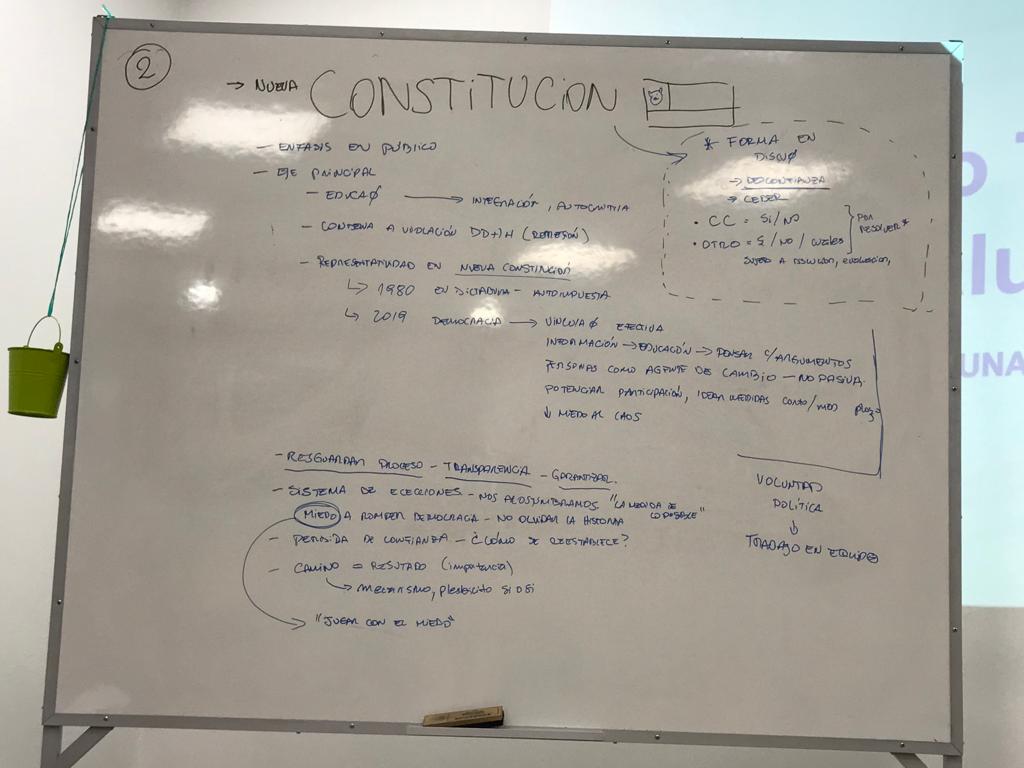 2
→ NUEVA CONSTITUCION
- ENFASIS EN PÚBLICO
- EJE PRINCIPAL
- EDUCAØ → INTEGRACIÓN, AUTOCRITICA
- CONDENA A VIOLACIÓN DD+HH (REPRESIÓN)
- REPRESENTATIVIDAD EN NUEVA CONSTITUCIÓN
↳ 1980 EN DICTADURA - AUTOIMPUESTA
↳ 2019 DEMOCRACIA → VINCULAØ EFECTIVA
INFORMACIÓN → EDUCACIÓN → PENSAR C/ARGUMENTOS
PERSONAS COMO AGENTE DE CAMBIO - NO PASIVA.
POTENCIAR PARTICIPACIÓN, IDEAR MEDIDAS CORTO/MED PLAZO
↓ MIEDO AL CAOS
* FORMA EN
DISCUØ
→ DESCONFIANZA
→ CEDER
• CC = SI/NO
• OTRO = SI/NO/CUALES
SUJETO A DISCUCIÓN, EVALUACION,
POR
RESOLVER*
- RESGUARDAR PROCESO - TRANSPARENCIA - GARANTIZAR.
- SISTEMA DE ELECCIONES - NOS ACOSTUMBRAMOS "LA MEDIDA DE
LO POSIBLE"
MIEDO A ROMPER DEMOCRACIA - NO OLVIDAR LA HISTORIA
- PERDIDA DE CONFIANZA - ¿CÓMO SE REESTABLECE?
- CAMINO = RESUTADO (importancia)
↳ MECANISMO, plebiscito SI o SI
→ "JUGAR CON EL MIEDO"
VOLUNTAD
POLÍTICA
↓
TRABAJO EN EQUIPO
UNA